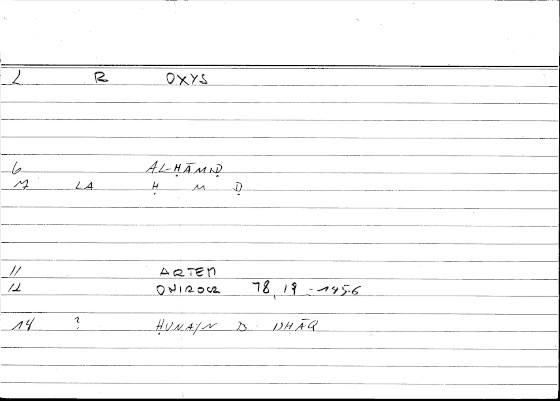 L R OXYS
6 AL-ḤĀMIḌ
M LA Ḥ M Ḍ
11 ARTEM
12 ONIROCR 78,19 - 145,6
14 ? ḤUNAYN B. ISḤĀQ